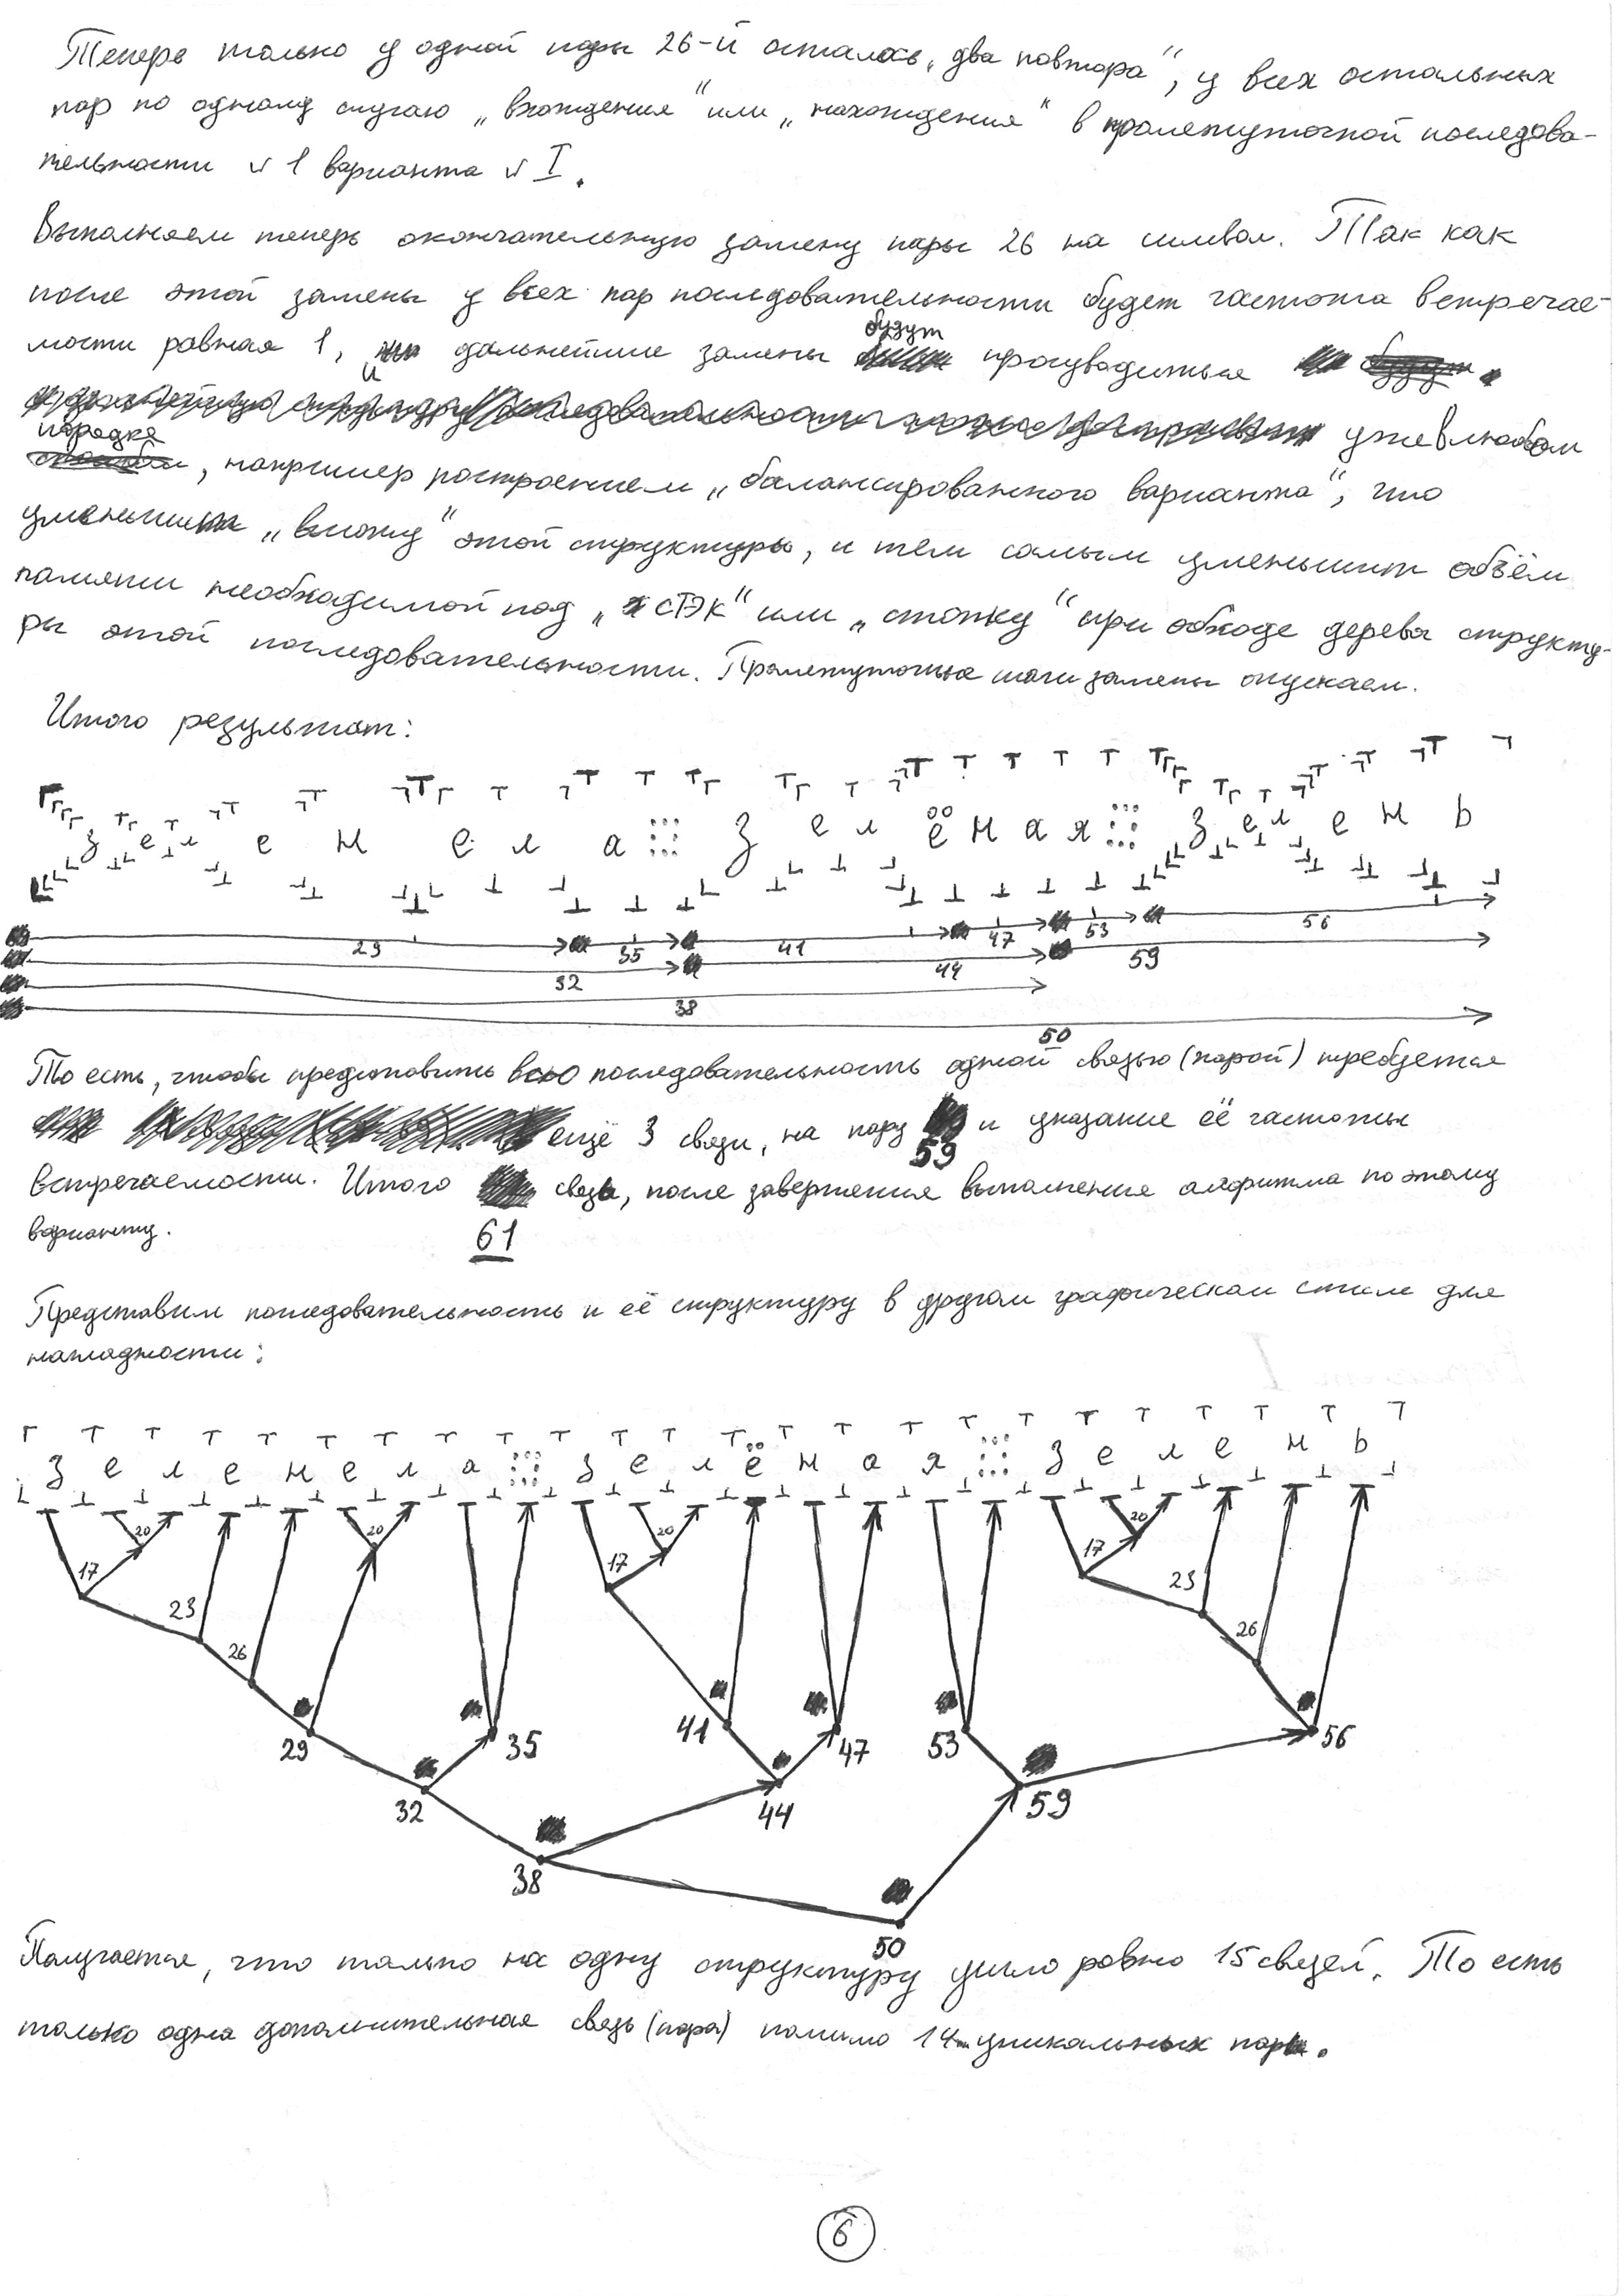 Теперь только у одной пары 26-й осталось „два повтора“, у всех остальных
пар по одному случаю „вхождения“ или „нахождения“ в промежуточной последова-
тельности √ 1 варианта √ I.
Выполняем теперь окончательную замену пары 26 на символ. Так как
после этой замены у всех пар последовательности будет частота встречае-
мости равная 1, и дальнейшие замены будут производиться
уже в любом
порядке, например построением „балансированного варианта“, что
уменьшит „высоту“ этой структуры, и тем самым уменьшит объём
памяти необходимой под „СТЭК“ или „стопку“ при обходе дерева структу-
ры этой последовательности. Промежуточные шаги замены опускаем.
Итого результат:
з е л е н е л а з е л ё н а я з е л е н ь
29 35 41 47 53 56
32 44 59
38
50
То есть, чтобы представить всю последовательность одной связью (парой) требуется
ещё 3 связи, на пару 59 и указание её частоты
встречаемости. Итого связь, после завершения выполнения алгоритма по этому
варианту. 61
Представим последовательность и её структуру в другом графическом стиле для
наглядности:
з е л е н е л а з е л ё н а я з е л е н ь
20 20 20 20
17 17 17
23 23
26 26
29 35 41 47 53 56
32 44 59
38
50
Получается, что только на одну структуру ушло ровно 15 связей. То есть
только одна дополнительная связь (пара) помимо 14 уникальных пар.
6